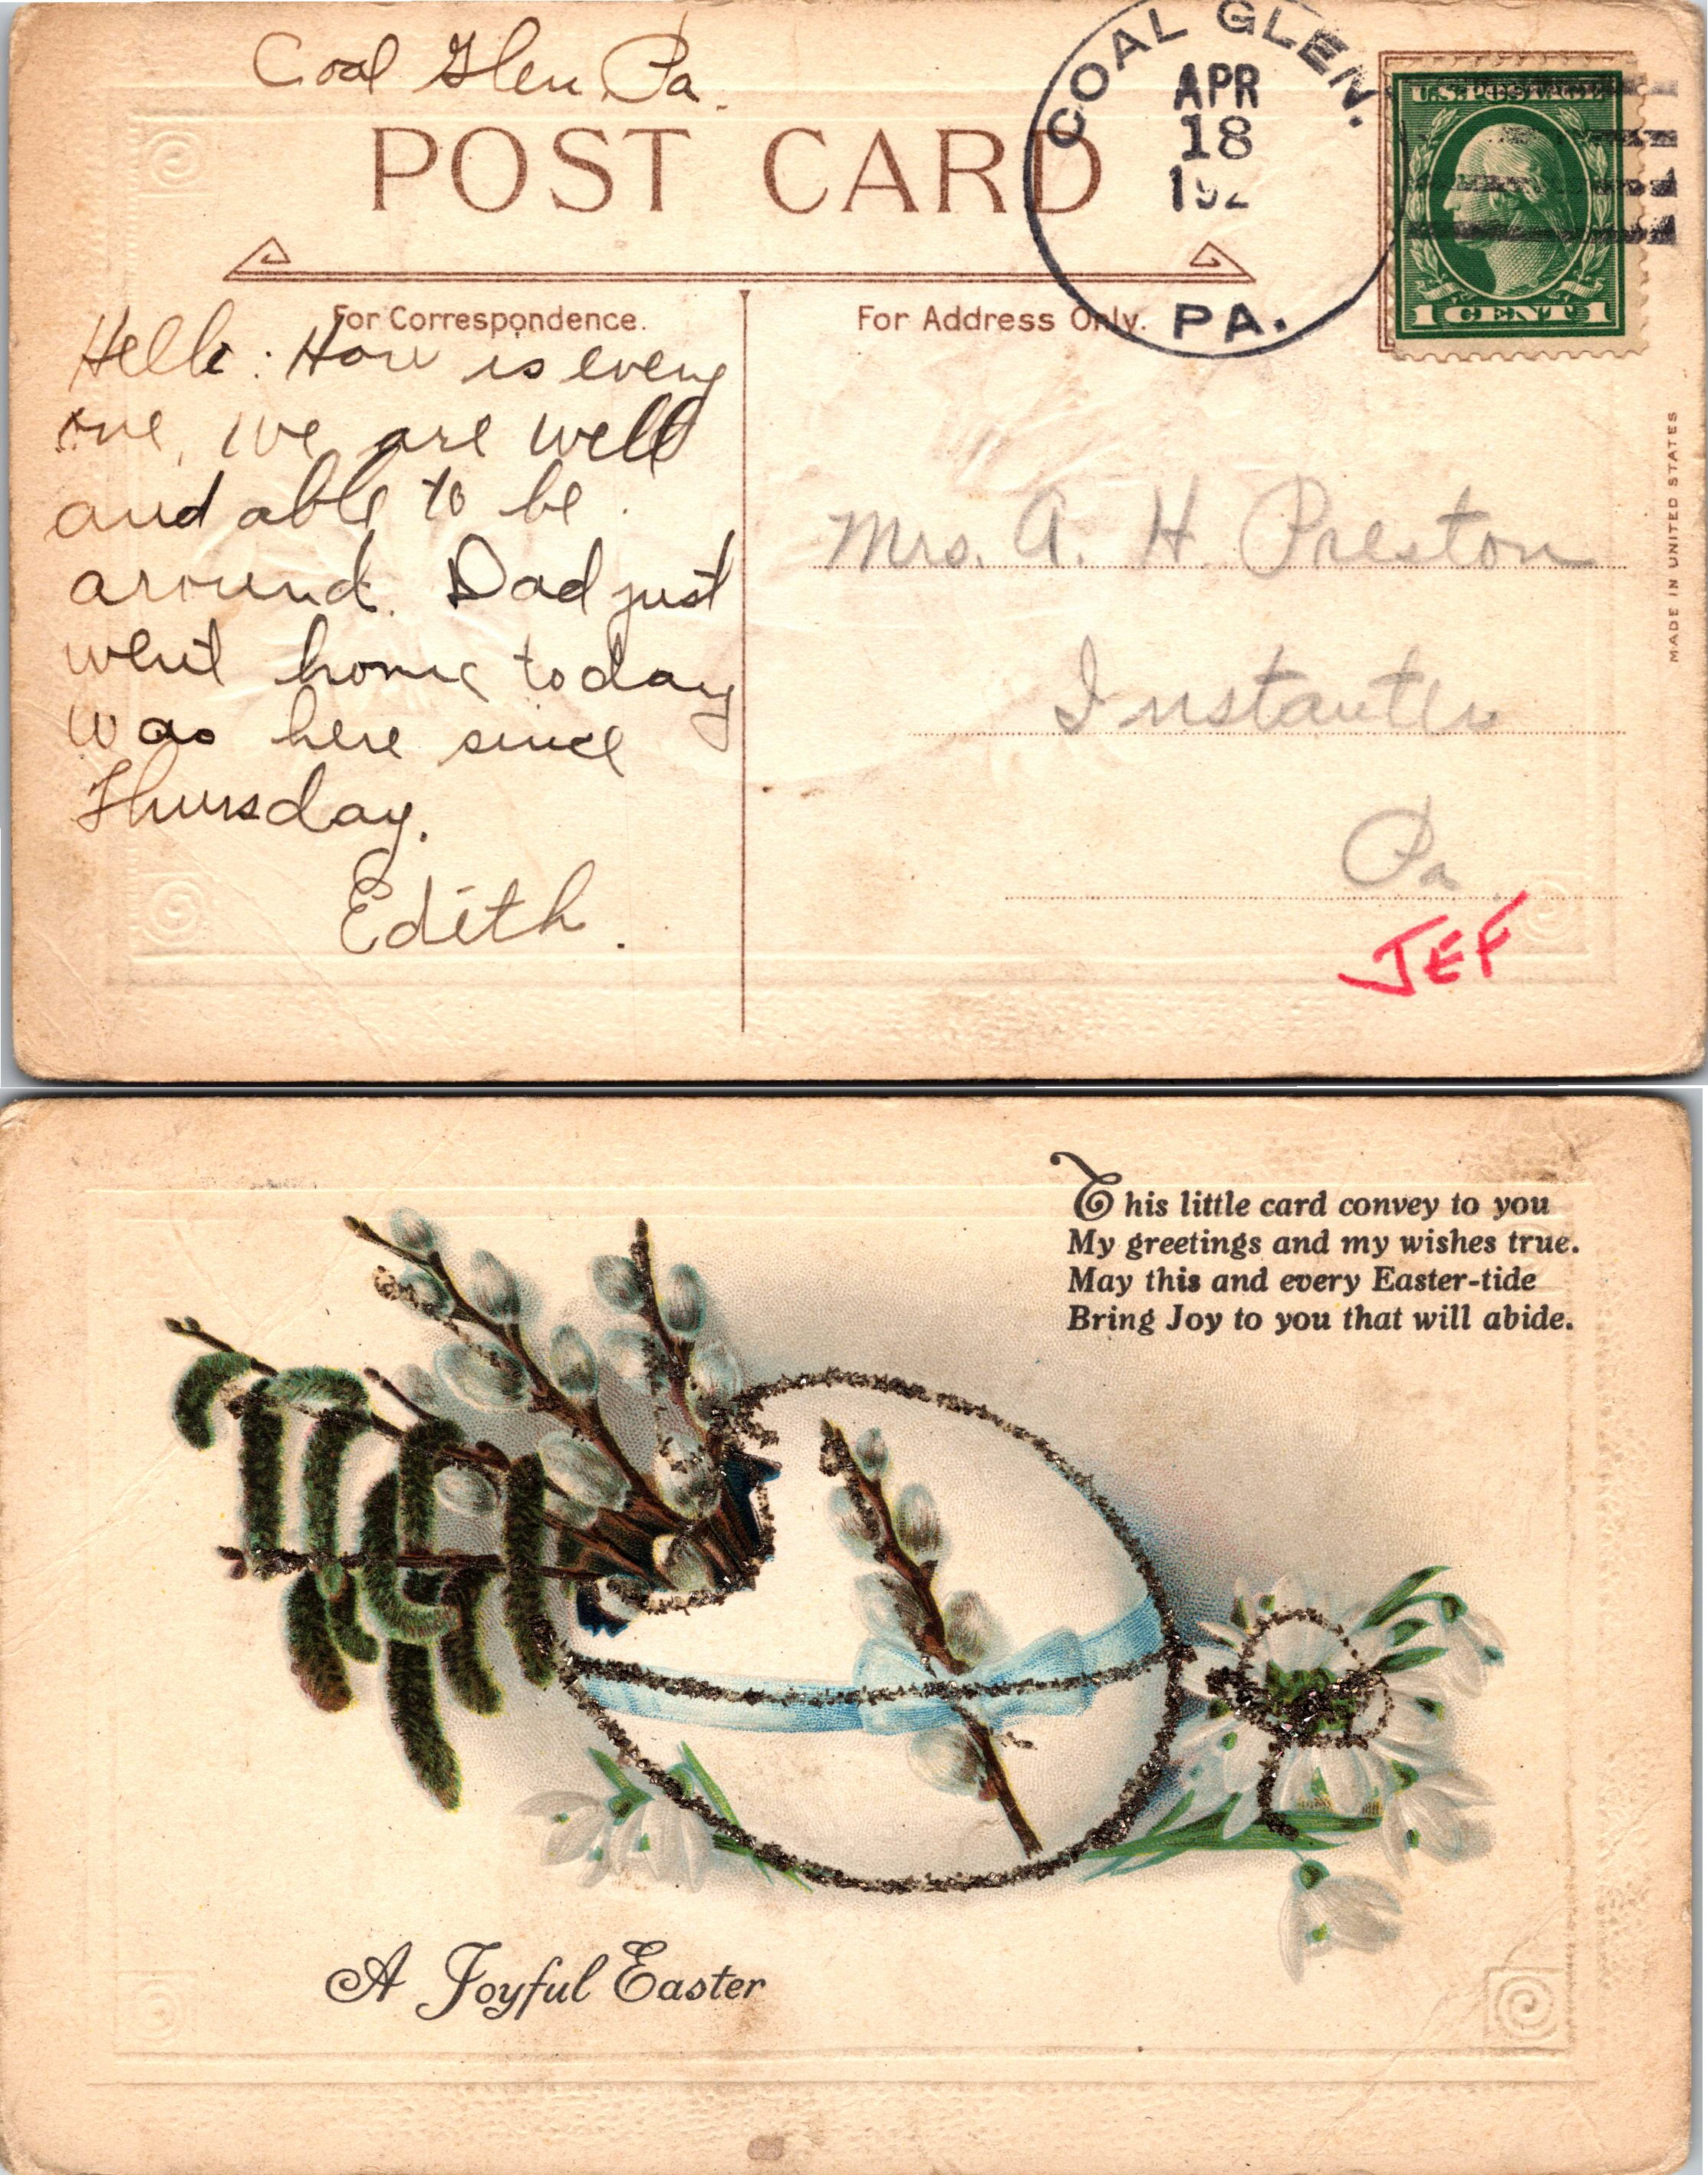 Coal Glen Pa.
POST CARD
COAL GLEN.
APR
18
192
PA.
U.S. POSTAGE
1 CENT 1
For Correspondence.
For Address Only.
Hello: How is every
one, we are well
and able to be
around. Dad just
went home today
was here since
Thursday.
Edith.
Mrs. A. H. Preston
Instanter
Pa
JEF
MADE IN UNITED STATES
This little card convey to you
My greetings and my wishes true.
May this and every Easter-tide
Bring Joy to you that will abide.
A Joyful Easter